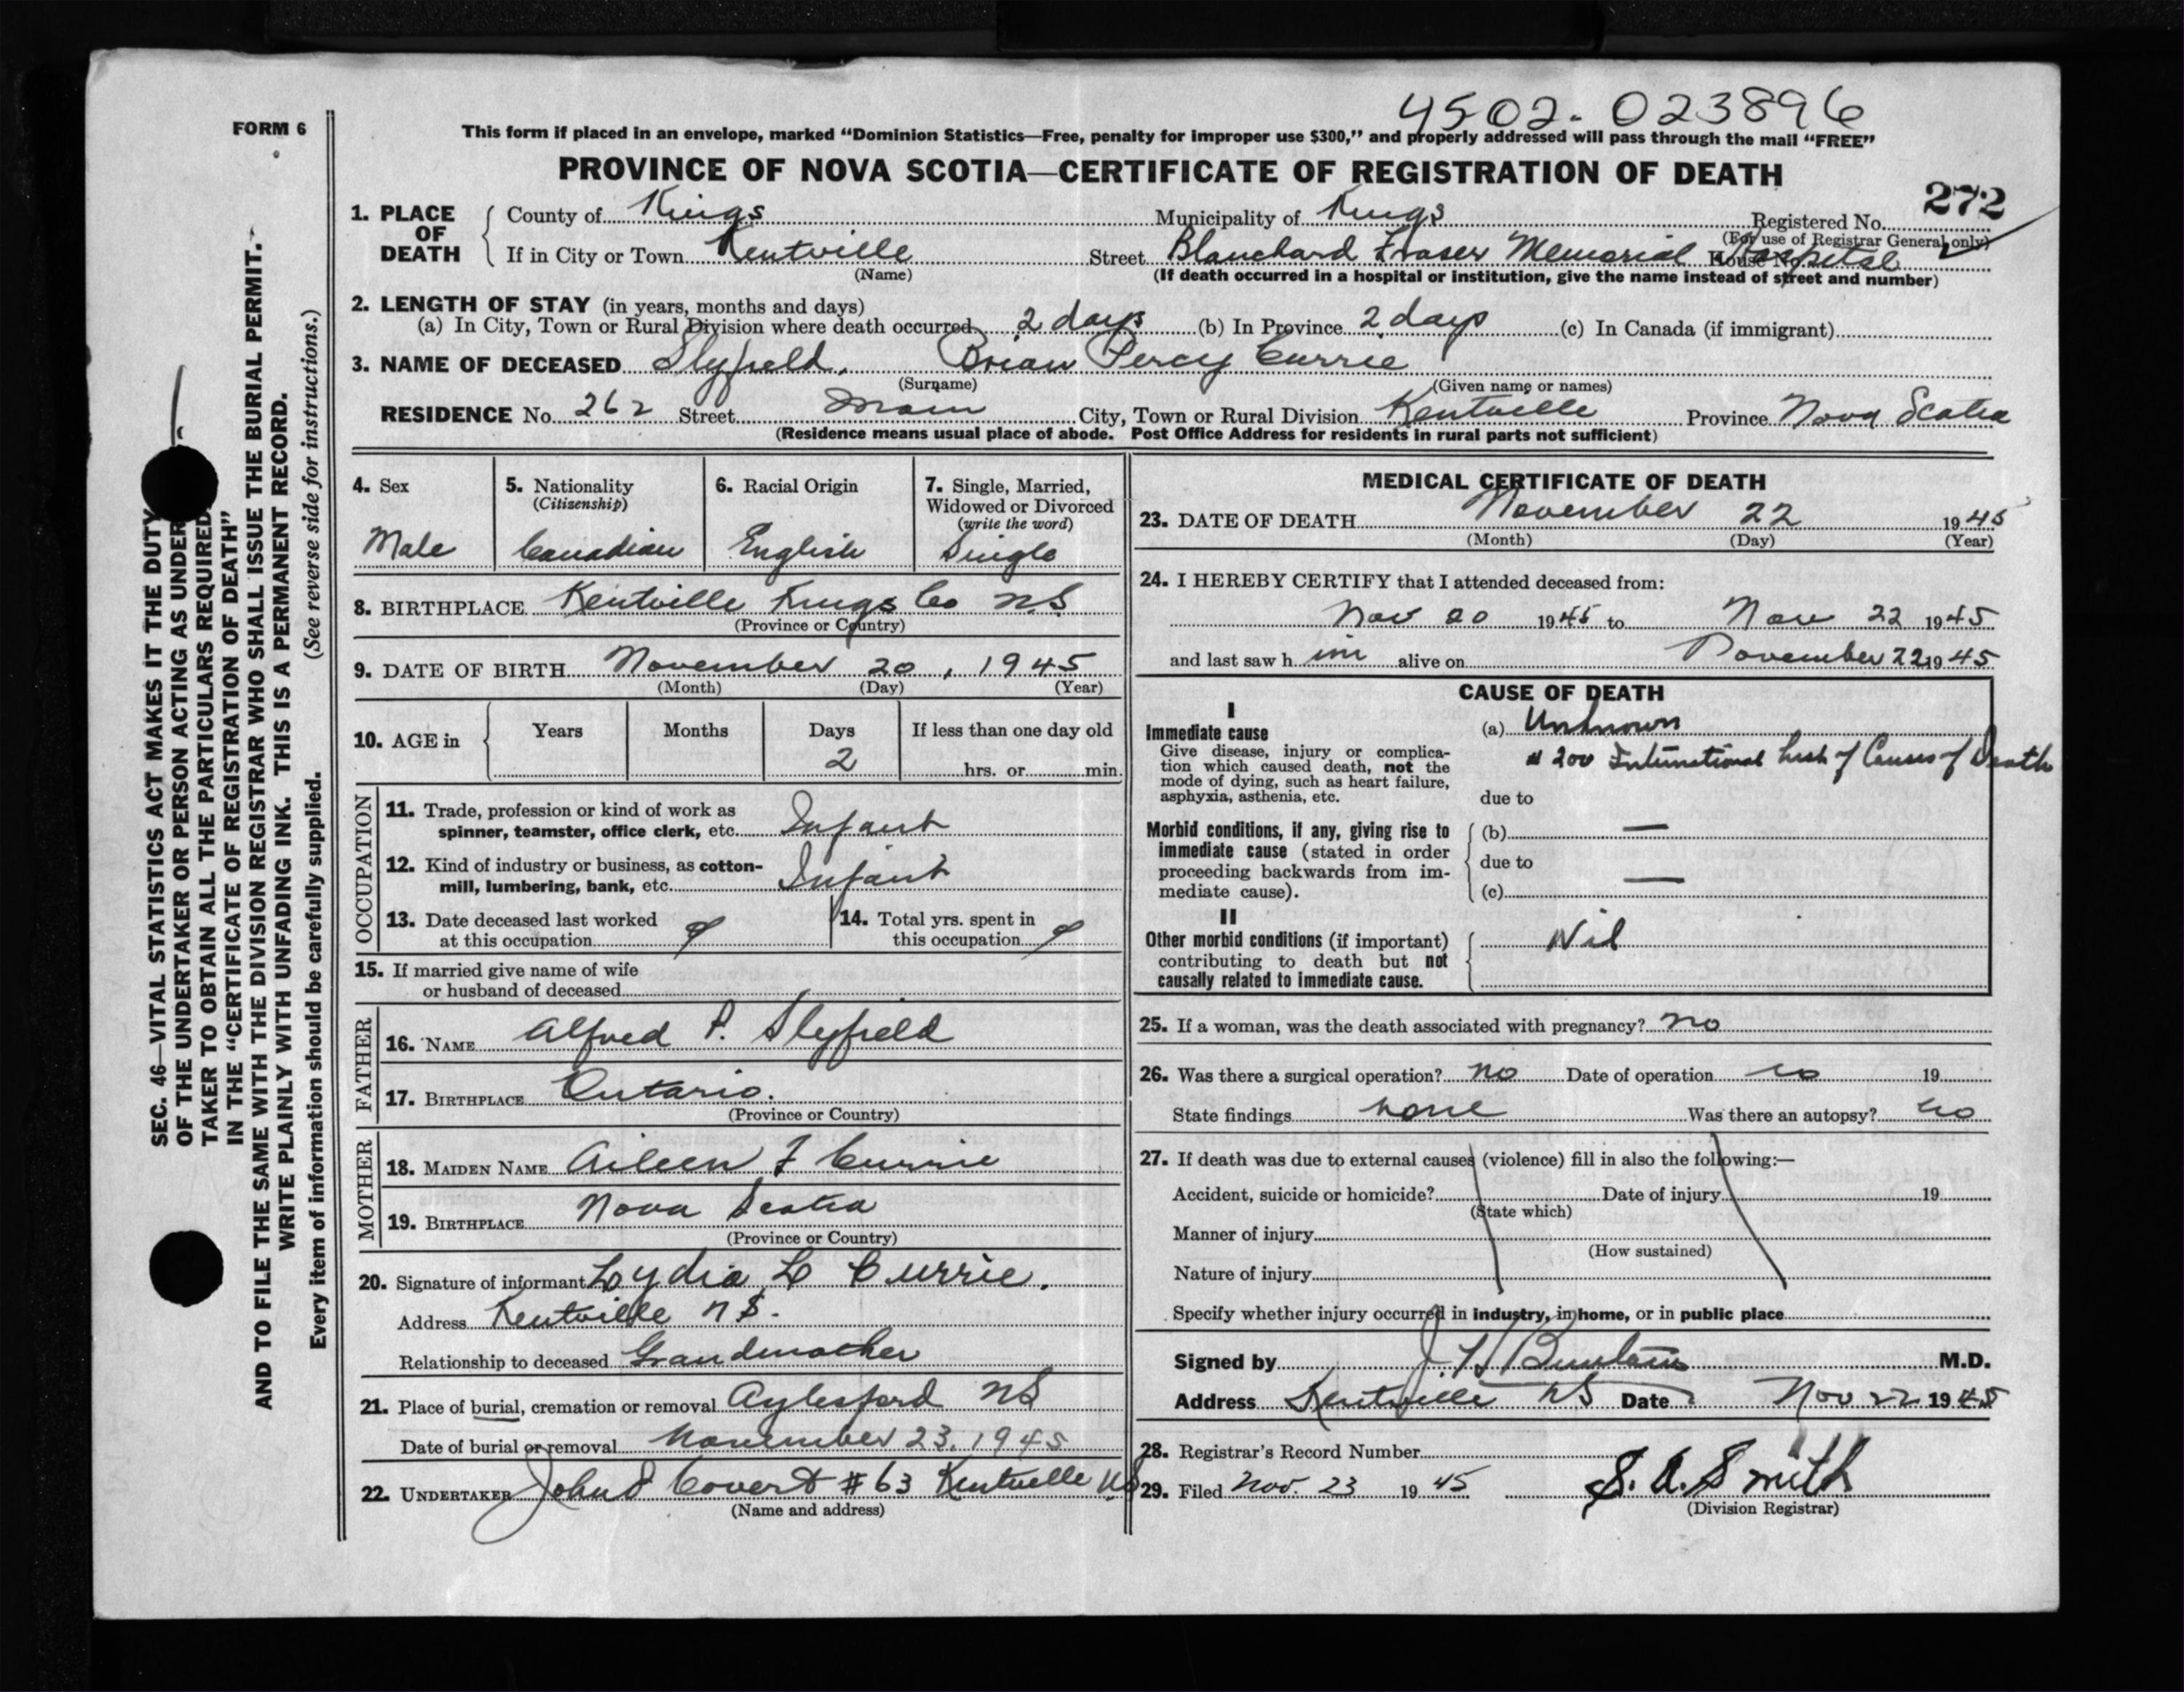 4502-023896
FORM 6
This form if placed in an envelope, marked "Dominion Statistics—Free, penalty for improper use $300," and properly addressed will pass through the mail "FREE"
PROVINCE OF NOVA SCOTIA—CERTIFICATE OF REGISTRATION OF DEATH
272
1. PLACE OF DEATH County of Kings Municipality of Kings Registered No.
(For use of Registrar General only)
If in City or Town Kentville Street Blanchard Fraser Memorial Hospital House No.
(Name) (If death occurred in a hospital or institution, give the name instead of street and number)
2. LENGTH OF STAY (in years, months and days)
(a) In City, Town or Rural Division where death occurred 2 days (b) In Province 2 days (c) In Canada (if immigrant)
3. NAME OF DECEASED Slyfield, Brian Percy Currie
(Surname) (Given name or names)
RESIDENCE No. 262 Street Main City, Town or Rural Division Kentville Province Nova Scotia
(Residence means usual place of abode. Post Office Address for residents in rural parts not sufficient)
4. Sex 5. Nationality 6. Racial Origin 7. Single, Married,
(Citizenship) Widowed or Divorced
(write the word)
Male Canadian English Single
8. BIRTHPLACE Kentville Kings Co NS
(Province or Country)
9. DATE OF BIRTH November 20, 1945
(Month) (Day) (Year)
10. AGE in Years Months Days If less than one day old
2 hrs. or min.
OCCUPATION
11. Trade, profession or kind of work as
spinner, teamster, office clerk, etc. Infant
12. Kind of industry or business, as cotton-
mill, lumbering, bank, etc. Infant
13. Date deceased last worked
at this occupation
14. Total yrs. spent in
this occupation
15. If married give name of wife
or husband of deceased
FATHER
16. NAME Alfred P. Slyfield
17. BIRTHPLACE Ontario.
(Province or Country)
MOTHER
18. MAIDEN NAME Aileen F Currie
19. BIRTHPLACE Nova Scotia
(Province or Country)
20. Signature of informant Lydia L Currie.
Address Kentville NS.
Relationship to deceased Grandmother
21. Place of burial, cremation or removal Aylesford NS
Date of burial or removal November 23, 1945
22. UNDERTAKER John Covert #63 Kentville NS
(Name and address)
MEDICAL CERTIFICATE OF DEATH
23. DATE OF DEATH November 22 1945
(Month) (Day) (Year)
24. I HEREBY CERTIFY that I attended deceased from:
Nov 20 1945 to Nov 22 1945
and last saw h im alive on November 22 1945
CAUSE OF DEATH
I
Immediate cause
Give disease, injury or complica-
tion which caused death, not the
mode of dying, such as heart failure,
asphyxia, asthenia, etc.
(a) Unknown
# 200 International List of Causes of Death
due to
Morbid conditions, if any, giving rise to
immediate cause (stated in order
proceeding backwards from im-
mediate cause).
(b) —
due to
(c) —
II
Other morbid conditions (if important)
contributing to death but not
causally related to immediate cause.
Nil
25. If a woman, was the death associated with pregnancy? no
26. Was there a surgical operation? no Date of operation no 19
State findings none Was there an autopsy? no
27. If death was due to external causes (violence) fill in also the following:—
Accident, suicide or homicide? Date of injury 19
(State which)
Manner of injury
(How sustained)
Nature of injury
Specify whether injury occurred in industry, in home, or in public place
Signed by M.D.
Address Kentville NS Date Nov 22 1945
28. Registrar's Record Number
29. Filed Nov. 23 1945 S. A. Smith
(Division Registrar)
SEC. 46—VITAL STATISTICS ACT MAKES IT THE DUTY
OF THE UNDERTAKER OR PERSON ACTING AS UNDER
TAKER TO OBTAIN ALL THE PARTICULARS REQUIRED
IN THE "CERTIFICATE OF REGISTRATION OF DEATH"
AND TO FILE THE SAME WITH THE DIVISION REGISTRAR WHO SHALL ISSUE THE BURIAL PERMIT.
WRITE PLAINLY WITH UNFADING INK. THIS IS A PERMANENT RECORD.
Every item of information should be carefully supplied. (See reverse side for instructions.)